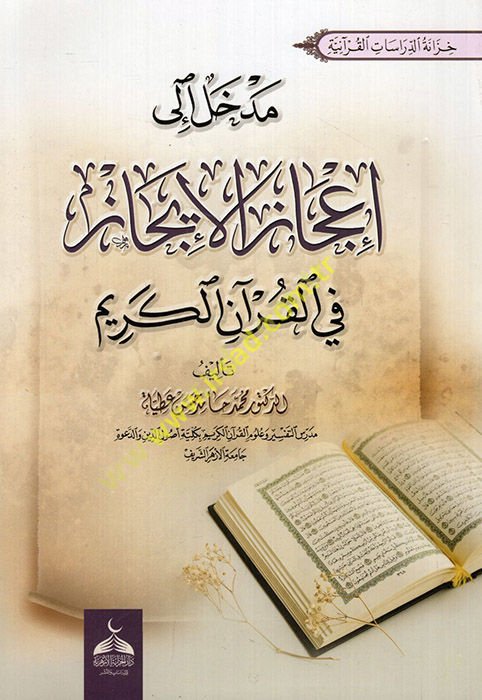 خِزَانَةُ الدِّرَاسَاتِ القُرْآنِيَّةِ
مَدْخَل إِلى
إعْجَاز الإِيجَاز
في القُرْآنِ الكَرِيم
تَأليفُ
الدكتور محمد حامد عطية
مدرس التفسير وعلوم القرآن الكريم بكلية أصول الدين والدعوة
جامعة الأزهر الشريف
دار الخزانة الأزهرية